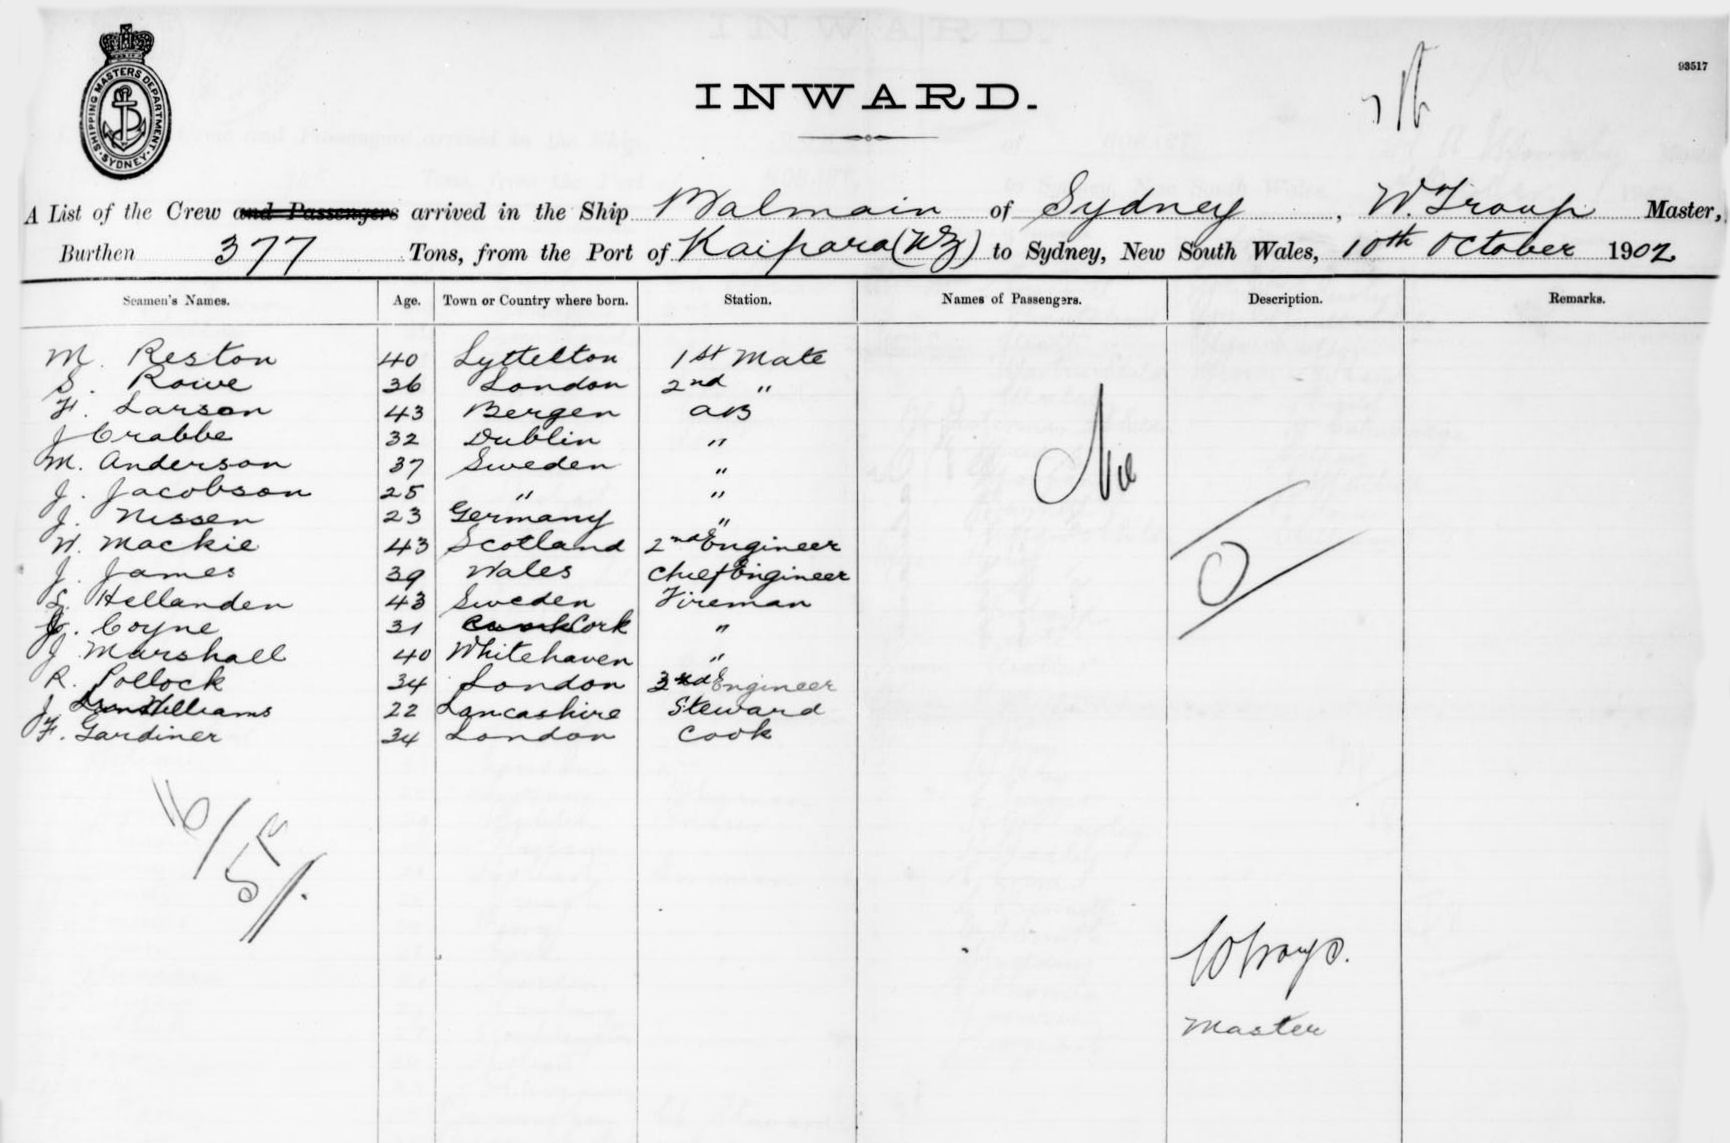 SHIPPING MASTERS DEPARTMENT · SYDNEY ·
93517
INWARD.
A List of the Crew and Passengers arrived in the Ship Balmain of Sydney, W. Troup Master,
Burthen 377 Tons, from the Port of Kaipara (NZ) to Sydney, New South Wales, 10th October 1902
Seamen's Names. Age. Town or Country where born. Station. Names of Passengers. Description. Remarks.
M. Reston 40 Lyttelton 1st Mate
S. Rowe 36 London 2nd "
F. Larson 43 Bergen AB
J Crabbe 32 Dublin "
M. Anderson 37 Sweden "
J. Jacobson 25 " "
J. Nissen 23 Germany "
W. Mackie 43 Scotland 2nd Engineer
J. James 39 Wales Chief Engineer
L. Hellanden 43 Sweden Fireman
J. Coyne 31 Cork "
J Marshall 40 Whitehaven "
R. Pollock 34 London 3rd Engineer
J Williams 22 Lancashire Steward
F. Gardiner 34 London Cook
Nil
0
16/
WTroup.
Master